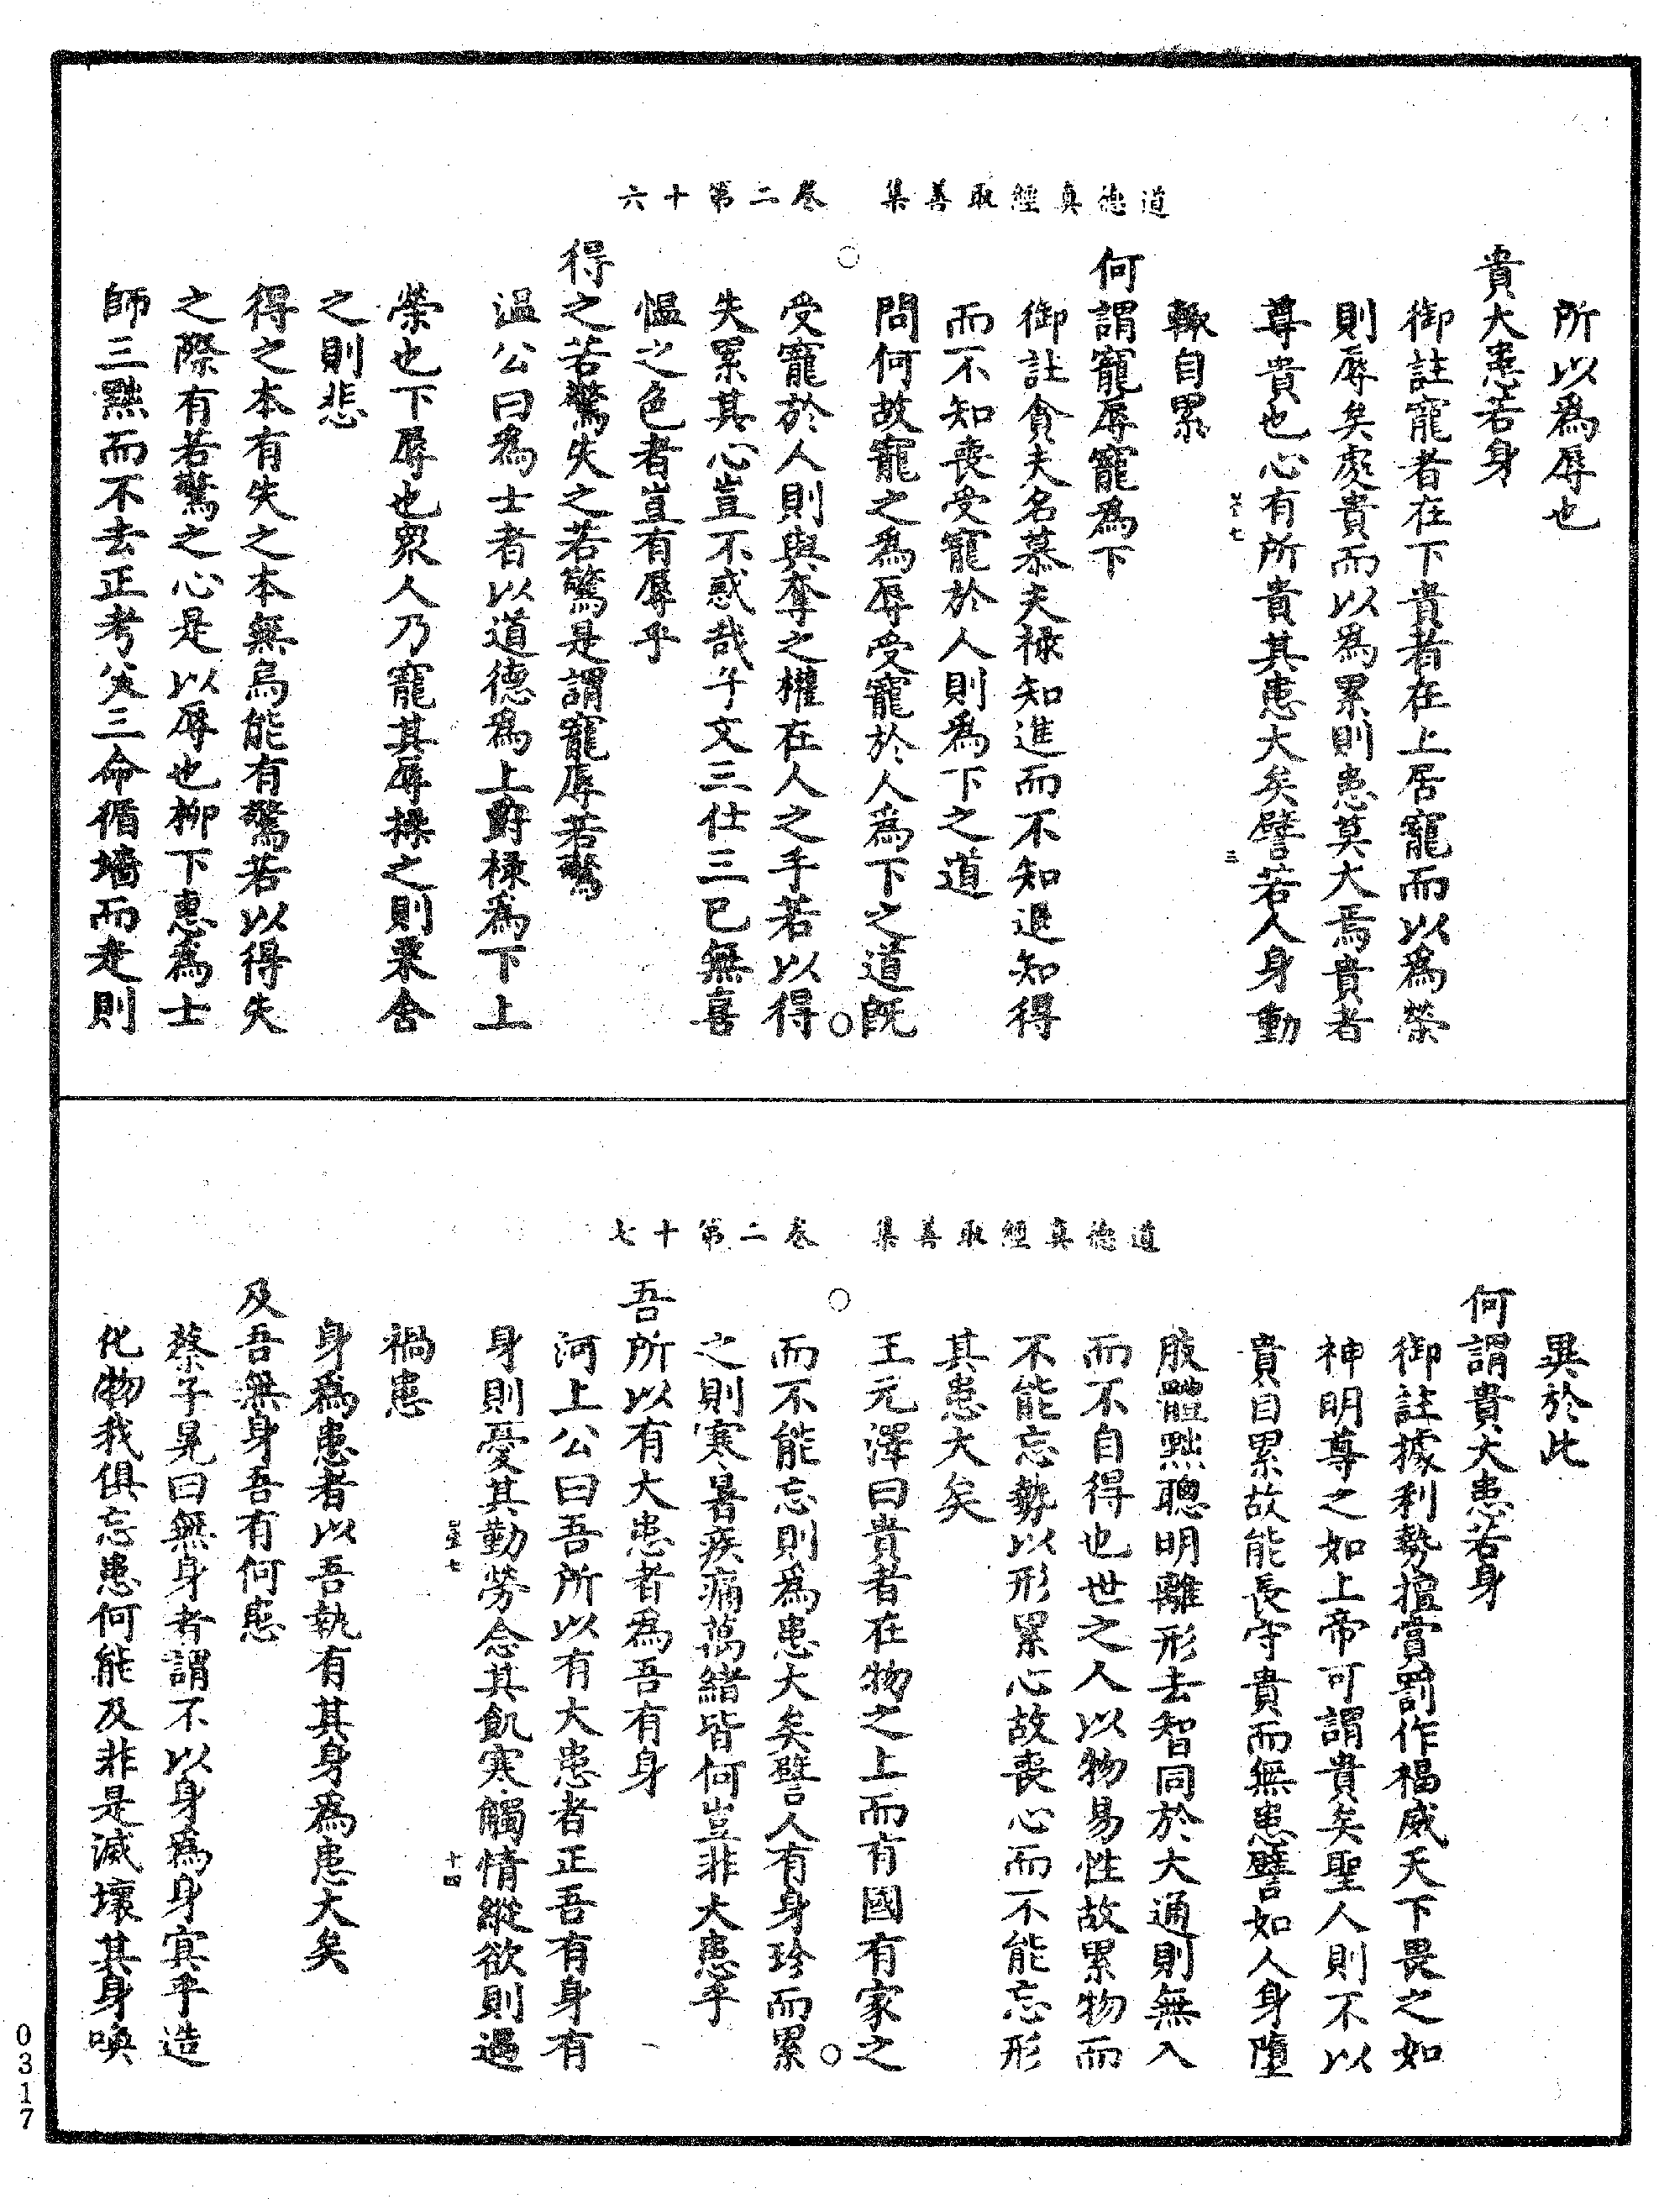 道德真經取善集　卷二第十六
所以為辱也
貴大患若身
御註寵者在下貴者在上居寵而以為榮
則辱矣處貴而以為累則患莫大焉貴者
尊貴也心有所貴其患大矣譬若人身動
輒自累
何謂寵辱寵為下
御註貪夫名慕夫祿知進而不知退知得
而不知喪受寵於人則為下之道
問何故寵之為辱受寵於人為下之道既
受寵於人則與奪之權在人之手若以得
失累其心豈不惑哉子文三仕三已無喜
慍之色者豈有辱乎
得之若驚失之若驚是謂寵辱若驚
溫公曰為士者以道德為上爵祿為下上
榮也下辱也眾人乃寵其辱操之則栗舍
之則悲
得之本有失之本無烏能有驚若以得失
之際有若驚之心是以辱也柳下惠為士
師三黜而不去正考父三命循墻而走則
道德真經取善集　卷二第十七
異於此
何謂貴大患若身
御註據利勢擅賞罰作福威天下畏之如
神明尊之如上帝可謂貴矣聖人則不以
貴自累故能長守貴而無患譬如人身墮
肢體黜聰明離形去智同於大通則無入
而不自得也世之人以物易性故累物而
不能忘勢以形累心故喪心而不能忘形
其患大矣
王元澤曰貴者在物之上而有國有家之
而不能忘則為患大矣譬人有身珍而累
之則寒暑疾痛萬緒皆何豈非大患乎
吾所以有大患者為吾有身
河上公曰吾所以有大患者正吾有身有
身則憂其勤勞念其飢寒觸情縱欲則遇
禍患
身為患者以吾執有其身為患大矣
及吾無身吾有何患
蔡子晃曰無身者謂不以身為身冥乎造
化物我俱忘患何能及非是滅壞其身喚
0317